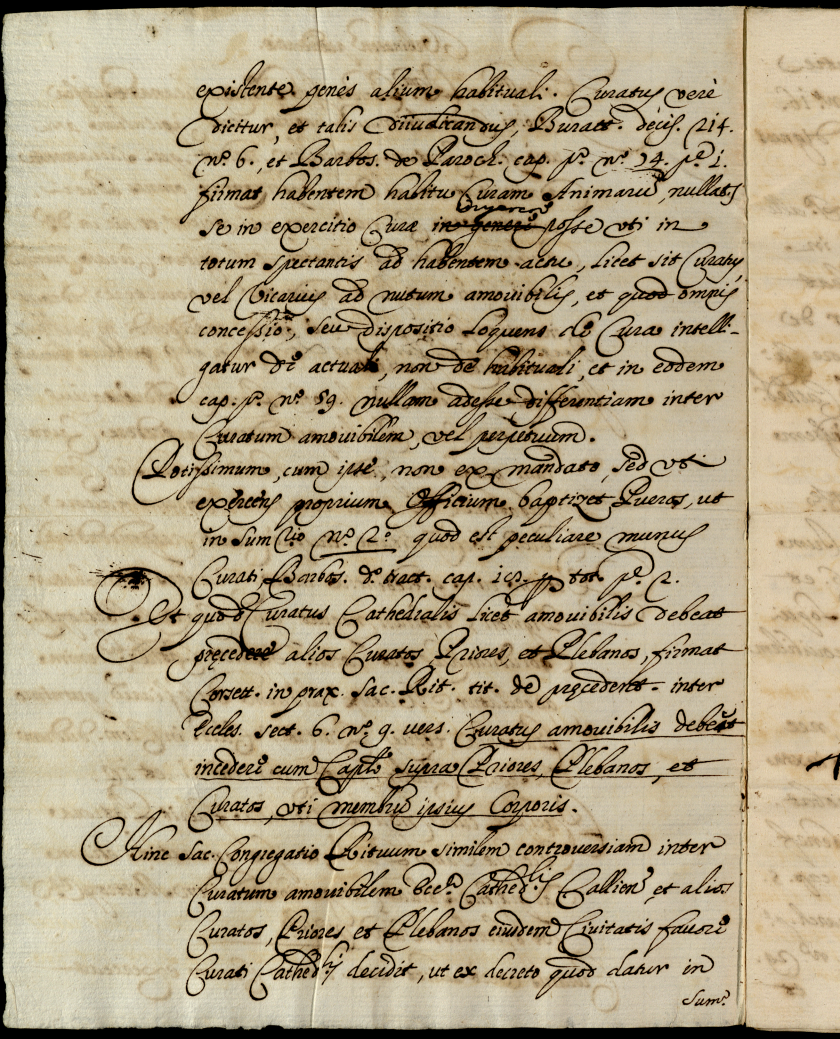 existente penes alium habituali. Curatus verè
dicitur, et talis diiudicandus, Buratt. decis. 214.
nº. 6., et Barbos. de Paroch. cap. pº. nº. 14. pº. i.
firmat habentem habitu Curam Animarũ, nullat.s
se in exercitio Curæ ingerere posse uti in
totum spectantis ad habentem actu, licet sit Curatus,
vel Vicarius ad nutum amouibilis, et quod omnis
concessio, seu dispositio loquens de Cura intelli-
gatur de actuali, non de habituali, et in eodem
cap. pº. nº. 59. nullam adesse differentiam inter
Curatum amouibilem, vel perpetuum.
Potissimum, cum ipse, non ex mandato, sed uti
exercens proprium Officium baptizet Pueros, ut
in Sum.rio nº. 2º. quod est peculiare munus
Curati Barbos. dº. tract. cap. p tot. pº. 2.
Et quod Curatus Cathedralis licet amouibilis debeat
pręcedere alios Curatos, Priores, et Plebanos, firmat
Corsett. in prax. Sac. Rit. tit. de pręcedent. inter
Eccles. sect. 6. nº. 9. vers. Curatus amouibilis debeat
incedere cum Caplo supra Priores, Plebanos, et
Curatos, uti membrũ ipsius Corporis.
Hinc Sac. Congregatio Rituum similem controuersiam inter
Curatum amouibilem Cathed.lis Callien. et alios
Curatos, Priores et Plebanos eiusdem Ciuitatis fauore
Curati Cathed.lis decidit, ut ex decreto quod datur in
Sum.